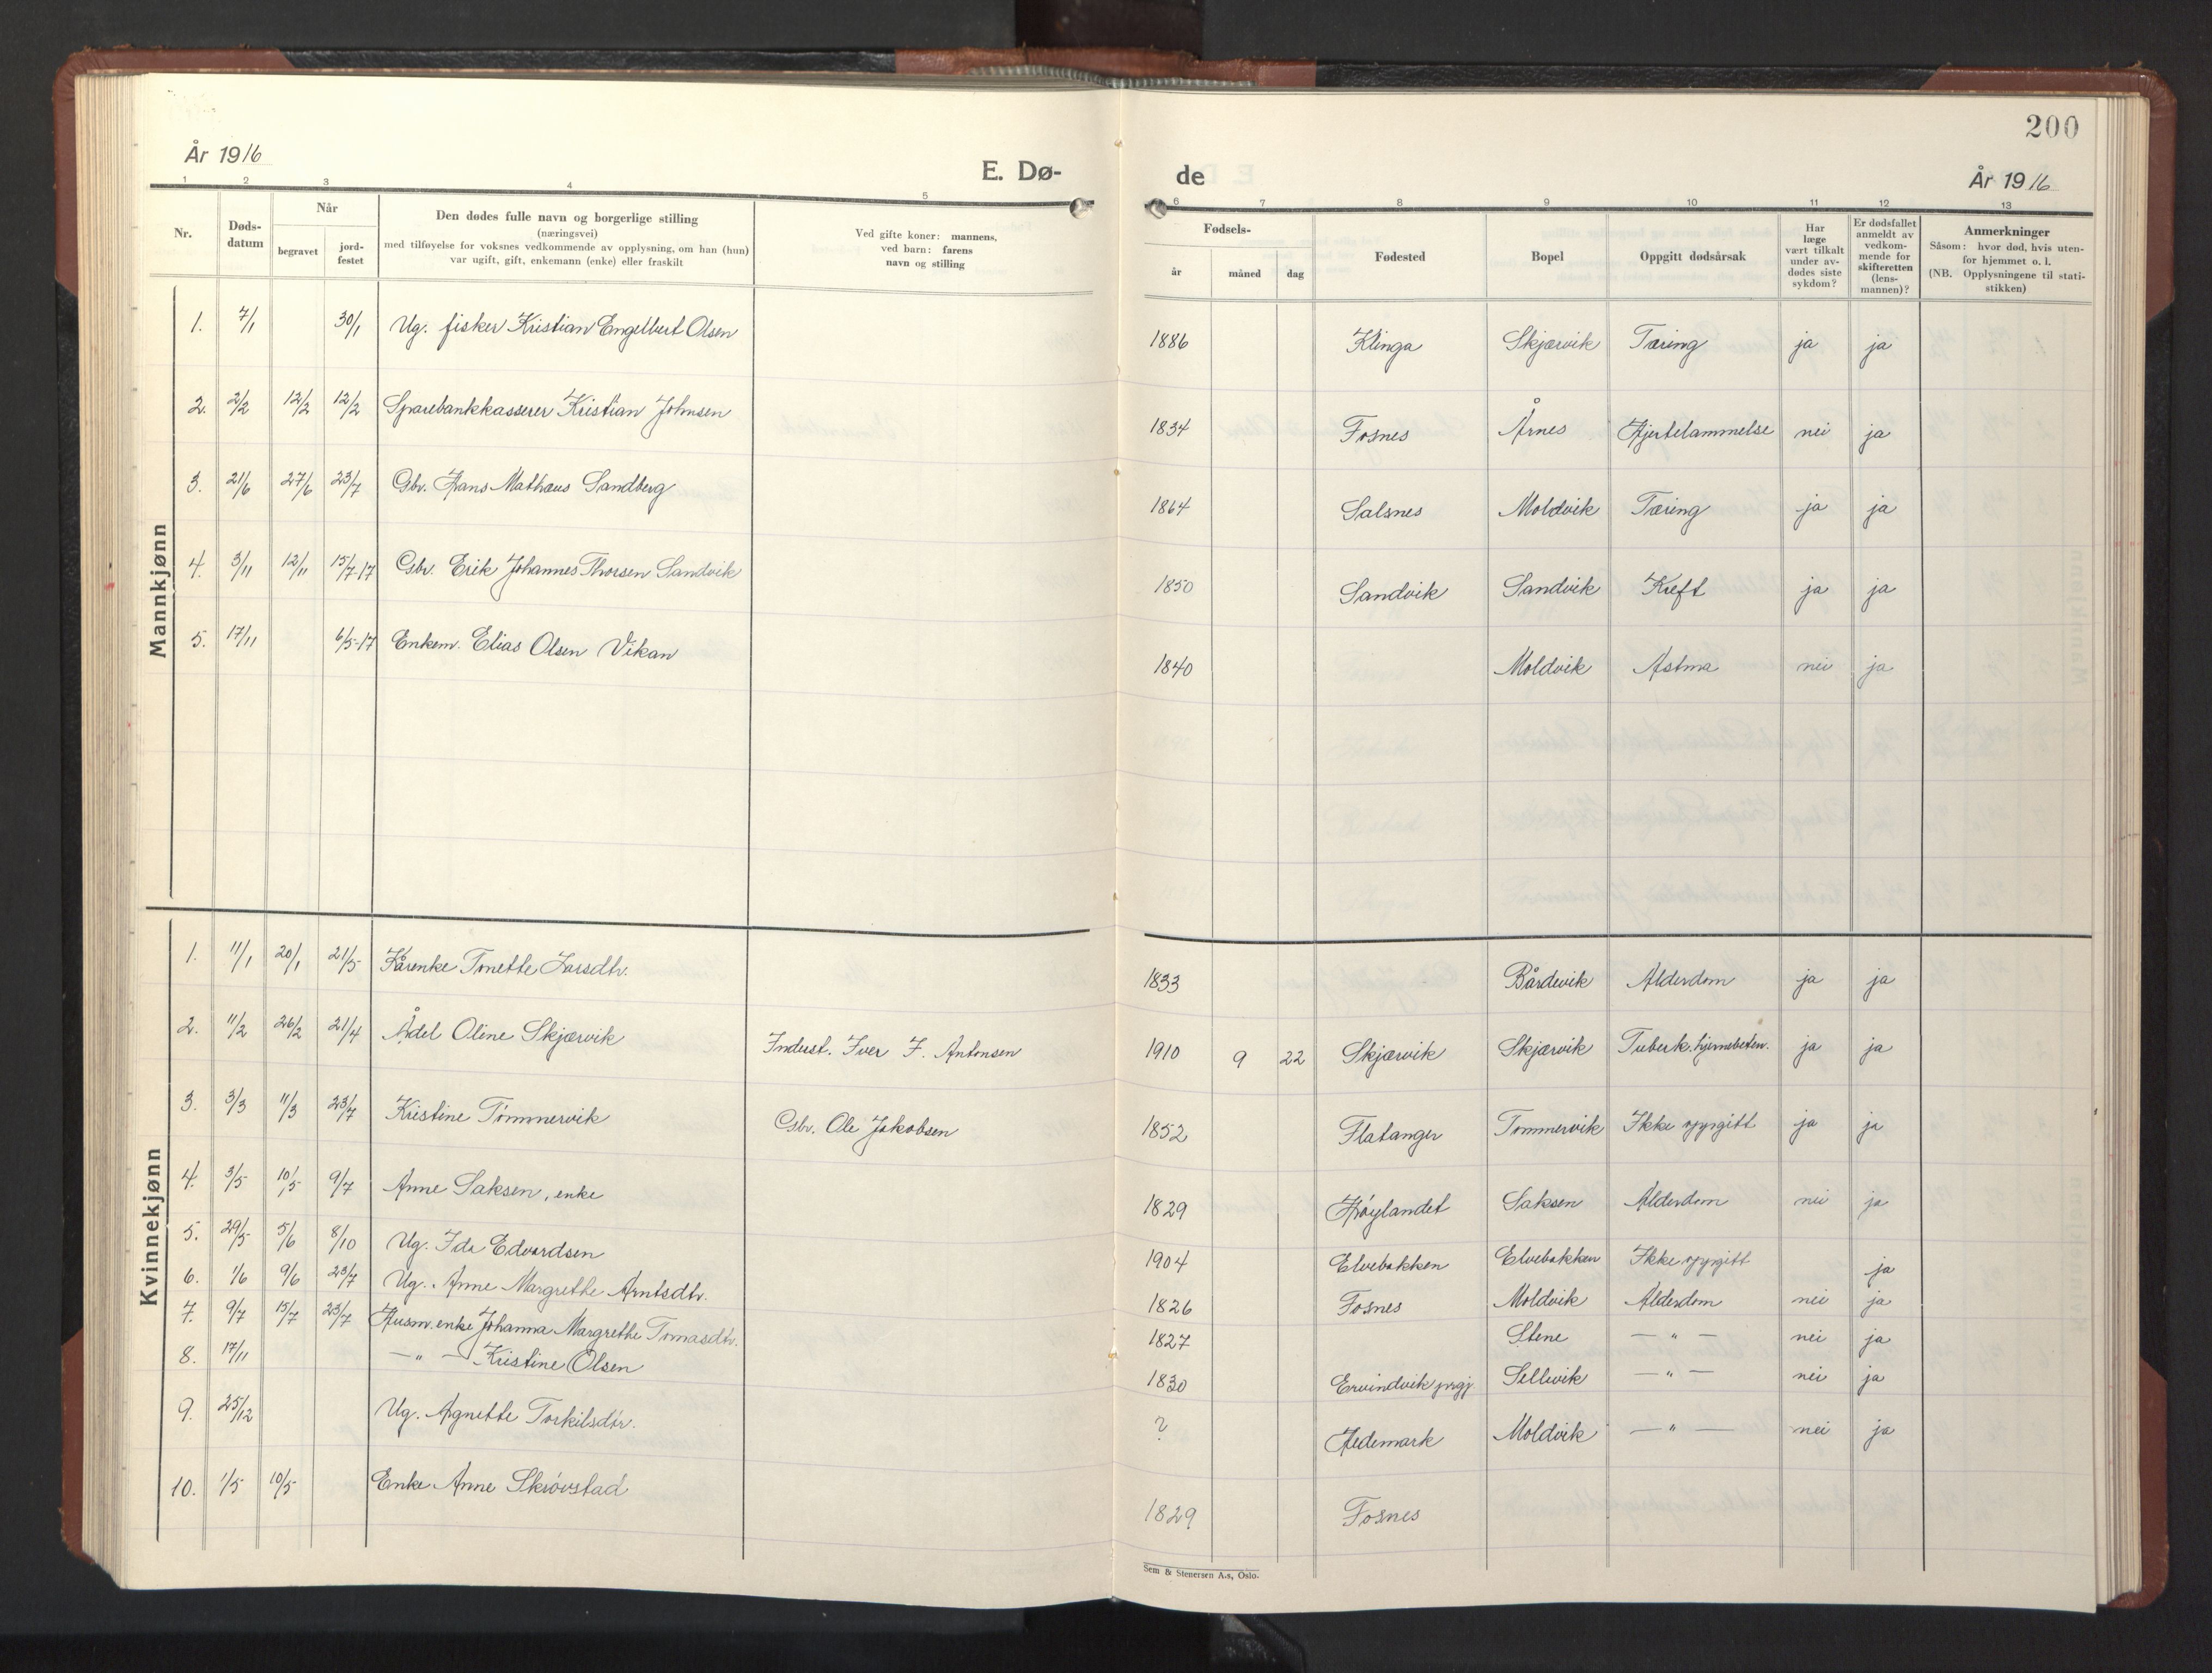 200
År 1916
E. Dø-
de
År 1916
1 2 3 4 5 6 7 8 9 10 11 12 13
Nr.
Døds-
datum
Når
begravet
jord-
festet
Den dødes fulle navn og borgerlige stilling
(næringsvei)
med tilføyelse for voksnes vedkommende av opplysning, om han (hun)
var ugift, gift, enkemann (enke) eller fraskilt
Ved gifte koner: mannens,
ved barn: farens
navn og stilling
Fødsels-
år
måned
dag
Fødested
Bopel
Oppgitt dødsårsak
Har
læge
vært tilkalt
under av-
dødes siste
sykdom?
Er dødsfallet
anmeldt av
vedkom-
mende for
skifteretten
(lens-
mannen)?
Anmerkninger
Såsom: hvor død, hvis uten-
for hjemmet o. l.
(NB. Opplysningene til stati-
stikken)
Mannkjønn
1. 7/1 30/1 Ug. fisker Kristian Engelbert Olsen 1886 Klinga Skjærvik Tæring ja ja
2. 2/2 12/2 12/2 Sparebankkasserer Kristian Johnsen 1834 Fosnes Årnes Hjertelammelse nei ja
3. 21/6 27/6 23/7 Gbr. Hans Mathæus Sandberg 1864 Salsnes Moldvik Tæring ja ja
4. 3/11 12/11 15/7-17 Gbr. Erik Johannes Thorsen Sandvik 1850 Sandvik Sandvik Kreft ja ja
5. 17/11 6/5-17 Enkem. Elias Olsen Vikan 1840 Moldvik Astma nei ja
Kvinnekjønn
1. 11/1 20/1 21/5 Kårenke Tonette Larsdtr. 1833 Bårdevik Alderdom ja ja
2. 11/2 26/2 21/4 Ådel Oline Skjærvik Inderst. Iver F. Antonsen 1910 9 22 Skjærvik Skjærvik Tuberk. hjernebeten. ja ja
3. 3/3 11/3 23/7 Kristine Tømmervik Gbr. Ole Jakobsen 1852 Flatanger Tømmervik Ikke oppgitt ja ja
4. 3/5 10/5 9/7 Anne Saksen, enke 1829 Høylandet Saksen Alderdom nei ja
5. 29/5 5/6 8/10 Ug. Ida Edvardsen 1904 Elvebakken Elvebakken Ikke oppgitt ja
6. 1/6 9/6 23/7 Ug. Anne Margrethe Arntsdtr. 1826 Fosnes Moldvik Alderdom nei ja
7. 9/7 15/7 23/7 Husm.enke Johanna Margrethe Tomasdtr. 1827 Stene — " — nei ja
8. 17/11 — " — Kristine Olsen 1830 Ervindvik prgj. Sellivik — " — nei ja
9. 25/12 Ug. Agnette Torkilsdtr. ? Hedemark Moldvik — " — nei ja
10. 1/5 10/5 Enke Anne Skrøvstad 1829 Fosnes
Sem & Stenersen A.s, Oslo.